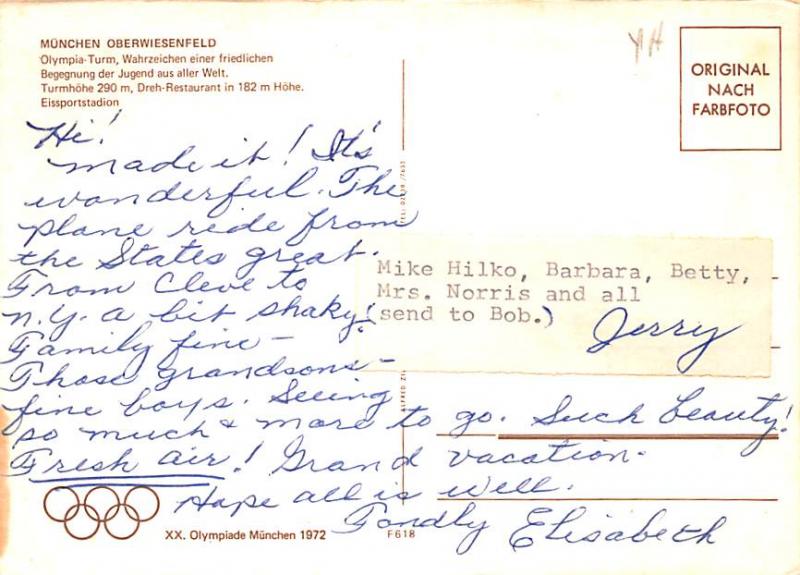 MÜNCHEN OBERWIESENFELD
Olympia-Turm, Wahrzeichen einer friedlichen
Begegnung der Jugend aus aller Welt.
Turmhöhe 290 m, Dreh-Restaurant in 182 m Höhe.
Eissportstadion
YH
ORIGINAL
NACH
FARBFOTO
Hi!
made it! It's
wonderful. The
plane ride from
the States great.
From Cleve to
N.Y. a bit shaky!
Family fine –
Those grandsons –
fine boys. Seeing
so much & more to go. Such beauty!
Fresh air! Grand vacation.
Hope all is well.
Fondly Elisabeth
Mike Hilko, Barbara, Betty,
Mrs. Norris and all
(send to Bob.)
Jerry
ALFRED
XX. Olympiade München 1972
F618